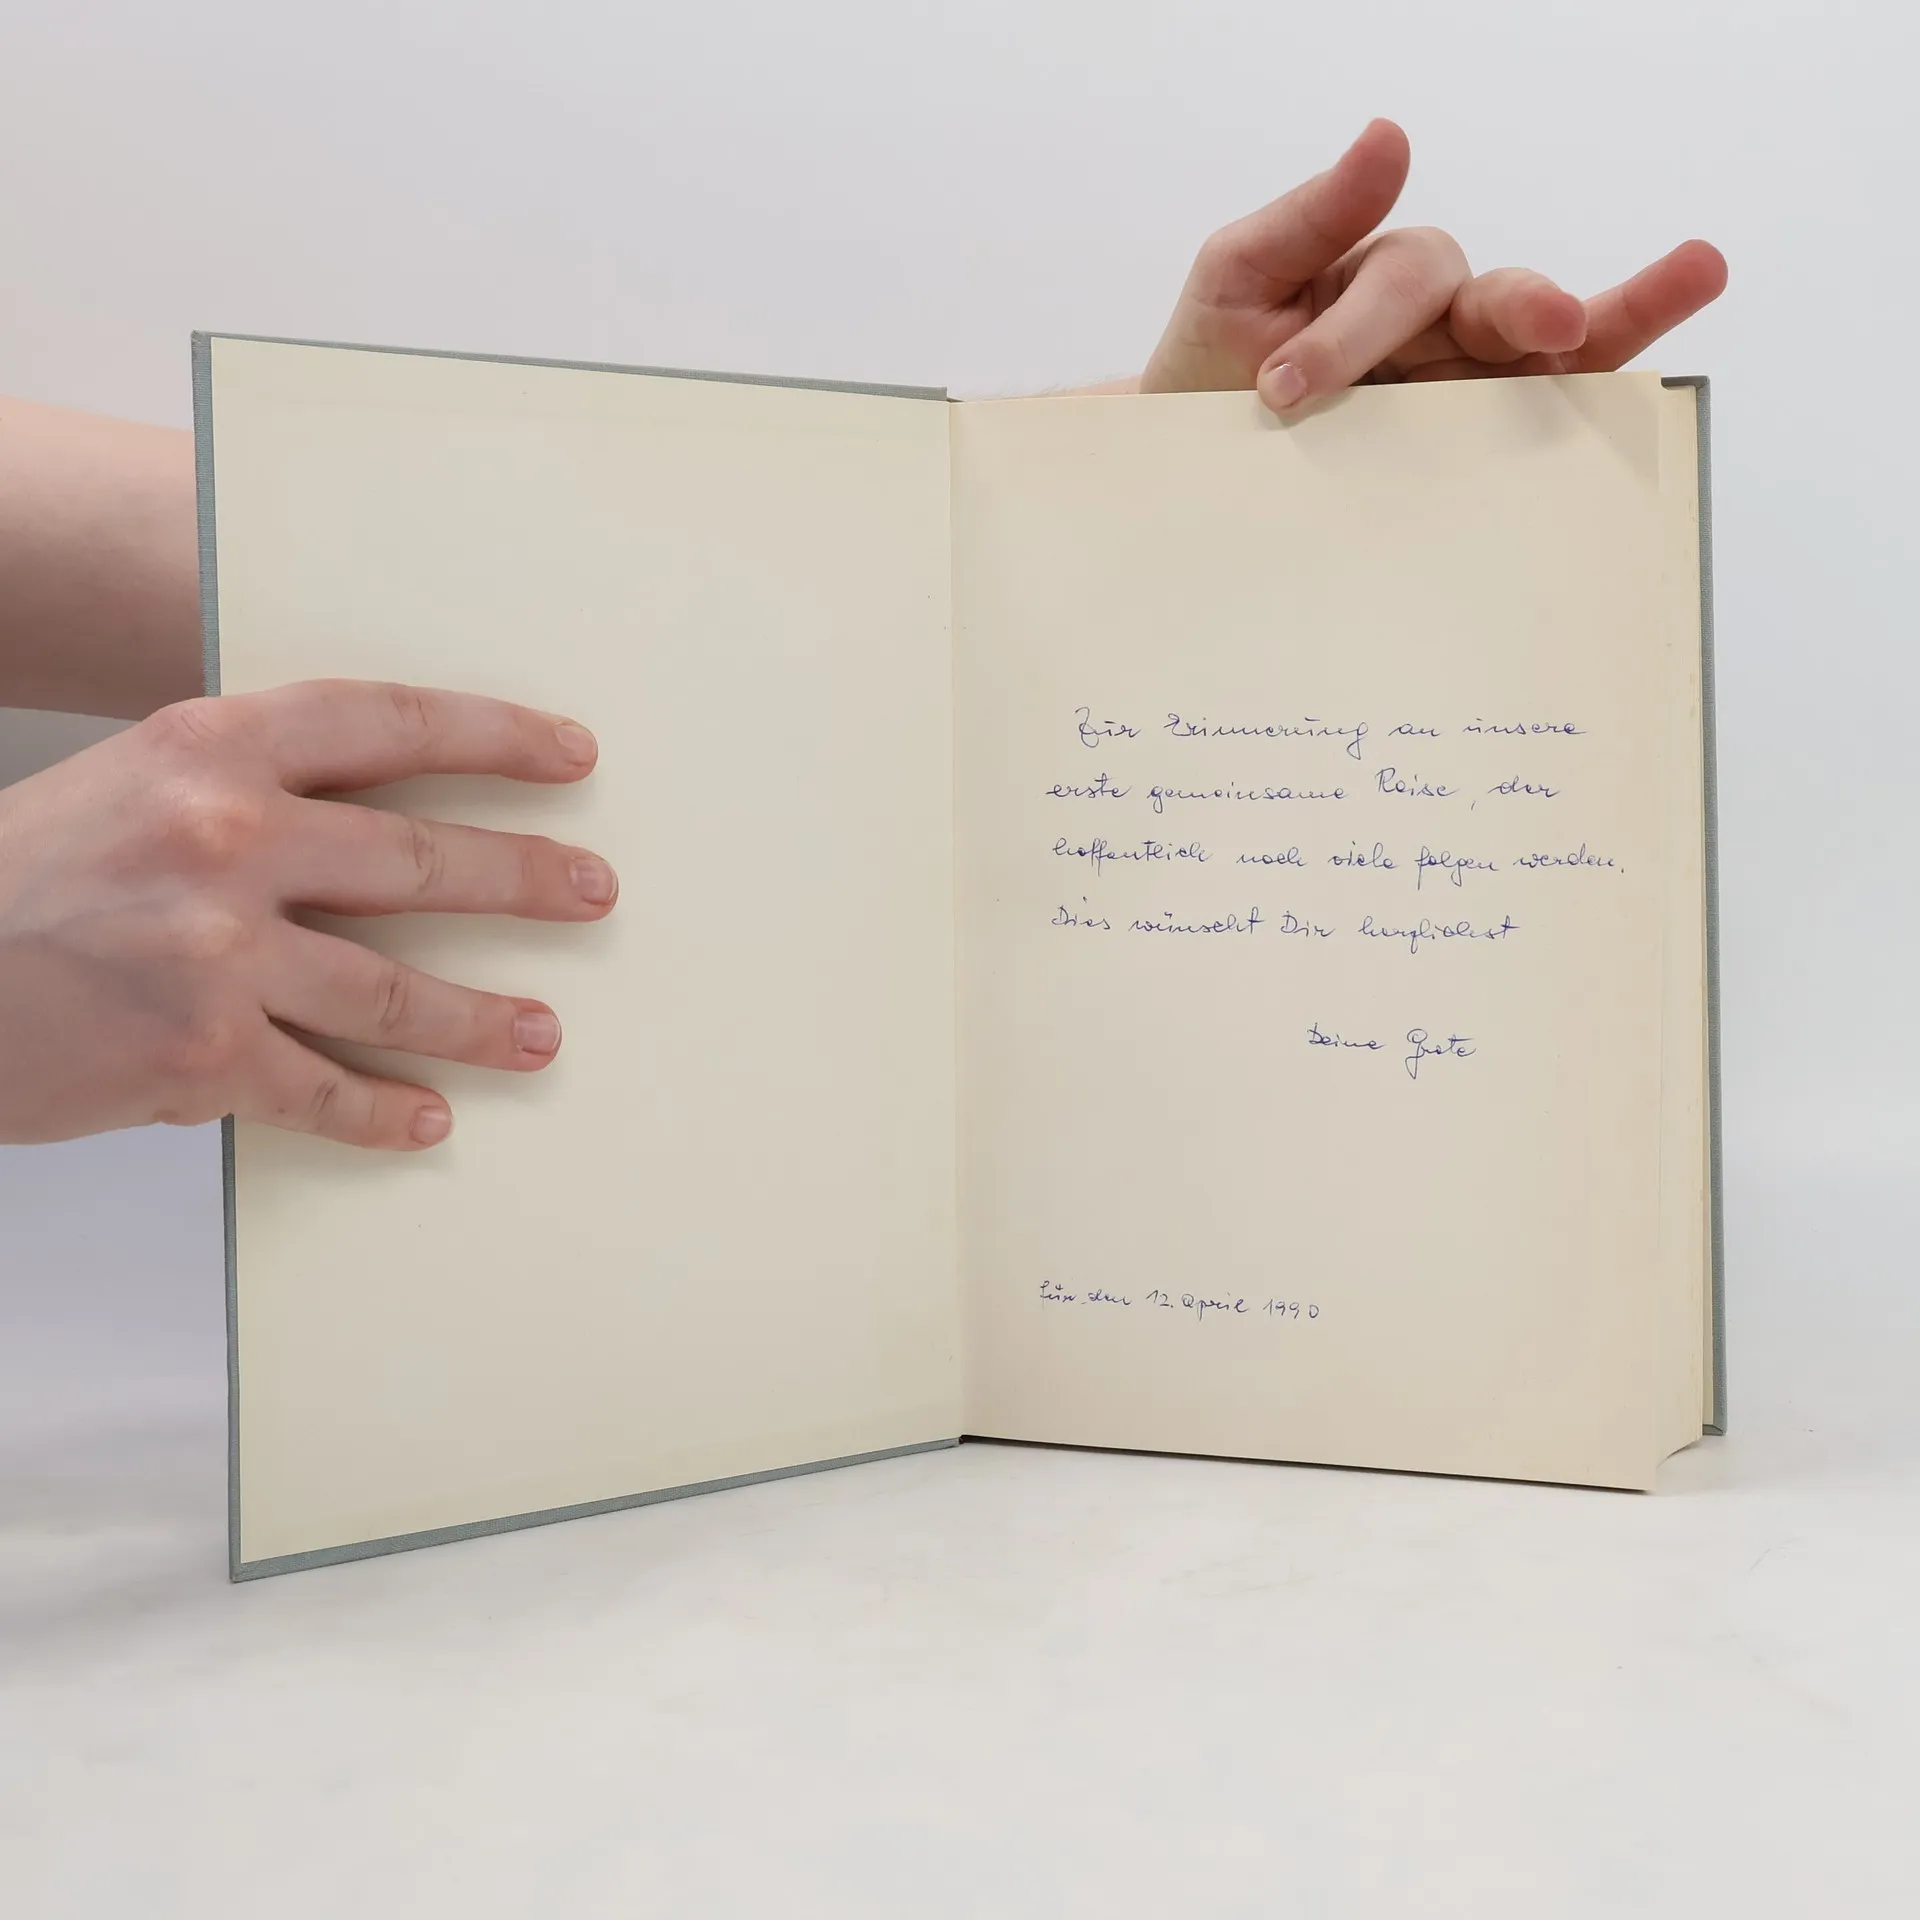 Zur Erinnerung an unsere
erste gemeinsame Reise, der
hoffentlich noch viele folgen werden.
Dies wünscht Dir herzlichst
Deine Grete
für den 12. April 1990